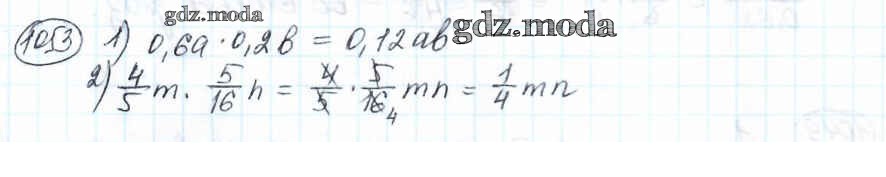 gdz.moda
1053 1) 0,6a · 0,2b = 0,12ab gdz.moda
2) 4/5 m · 5/16 n = 4/5 · 5/16 4 mn = 1/4 mn